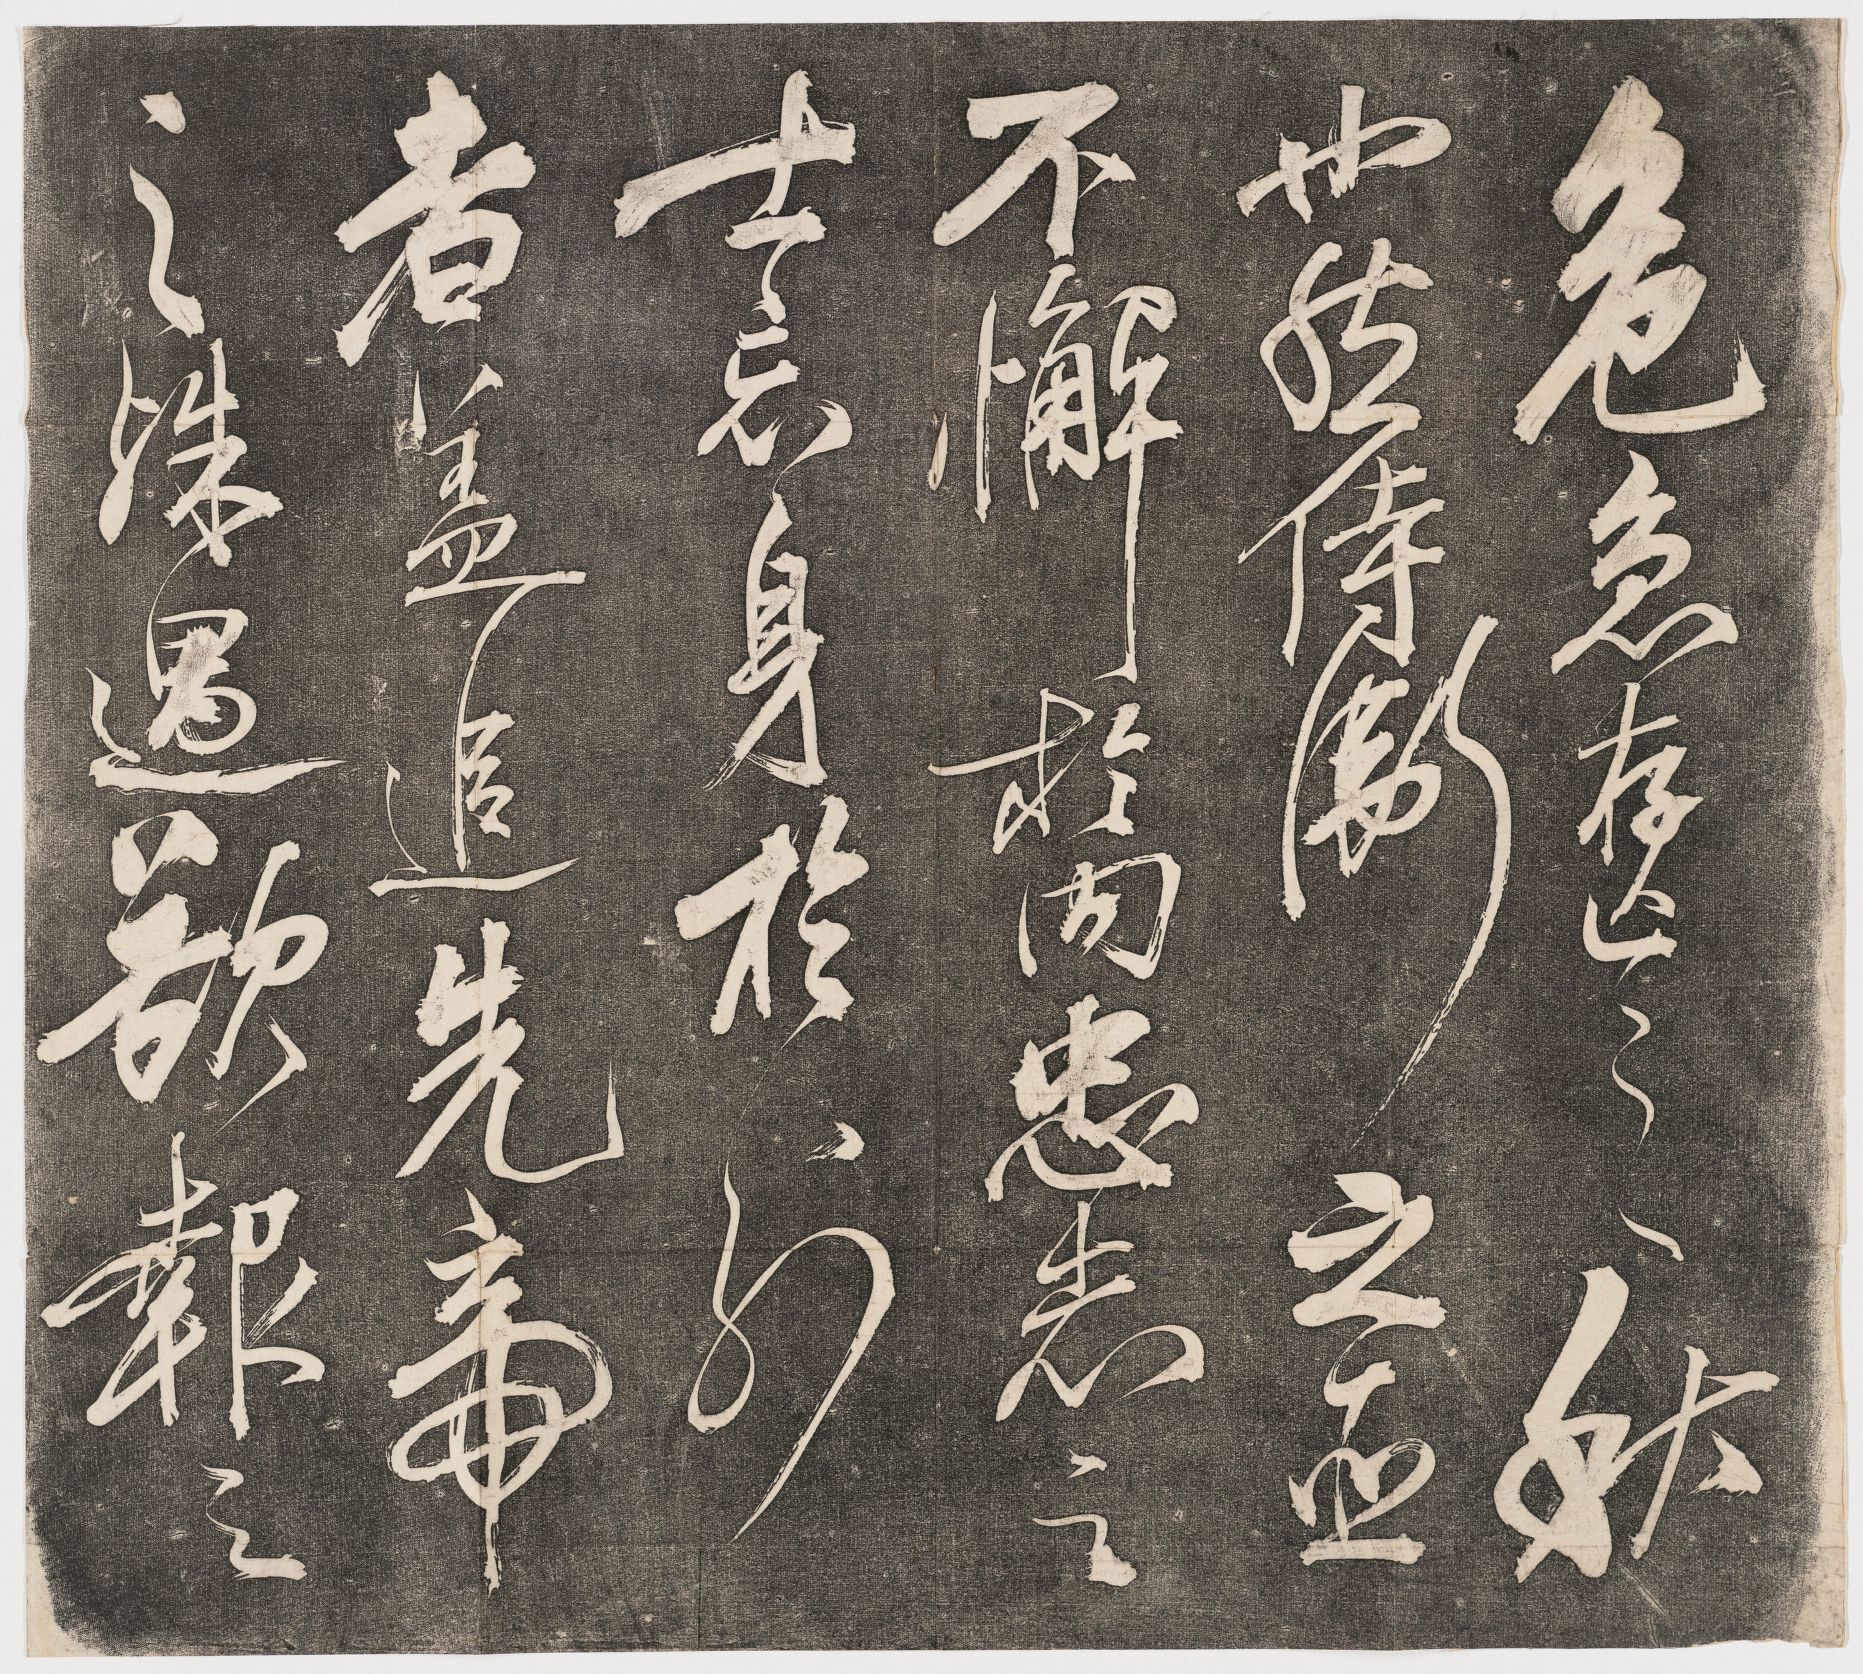 危急存亡之秋
也然侍衛之臣
不懈於内忠志之
士忘身於外
者蓋追先帝
之殊遇欲報之